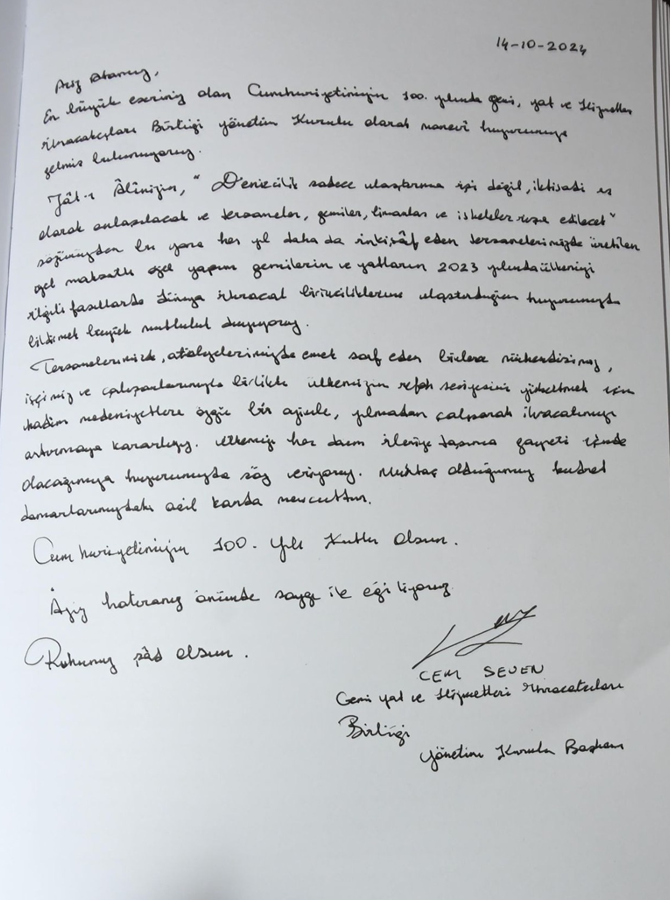 14-10-2024
Aziz Atamız,
En büyük eseriniz olan Cumhuriyetimizin 100. yılında Gemi, Yat ve Hizmetleri
İhracatçıları Birliği Yönetim Kurulu olarak manevi huzurunuza
gelmiş bulunuyoruz.
Zât-ı Âlinizin, "Denizcilik sadece ulaştırma işi değil, iktisadi iş
olarak anlaşılacak ve tersaneler, gemiler, limanlar ve iskeleler inşa edilecek"
sözünüzden bu yana her yıl daha da inkişâf eden tersanelerimizde üretilen
özel maksatlı özel yapım gemilerin ve yatların 2023 yılında ülkemizi
ilgili fasıllarda dünya ihracat birinciliklerine ulaştırdığını huzurunuzda
bildirmek büyük mutluluk duyuyoruz.
Tersanelerimizde, atölyelerimizde emek sarf eden binlerce mühendisimiz,
işçimiz ve çalışanlarımızla birlikte ülkemizin refah seviyesini yükseltmek için
kadim medeniyetlere özgü bir azimle, yılmadan çalışarak ihracatımızı
artırmaya kararlıyız. Ülkemizi her daim ileriye taşıma gayreti içinde
olacağımıza huzurunuzda söz veriyoruz. Muhtaç olduğumuz kudret
damarlarımızdaki asil kanda mevcuttur.
Cumhuriyetimizin 100. Yılı Kutlu Olsun.
Aziz hatıranız önünde saygı ile eğiliyoruz
Ruhunuz şâd olsun.
CEM SEVEN
Gemi Yat ve Hizmetleri İhracatçıları
Birliği
Yönetim Kurulu Başkanı